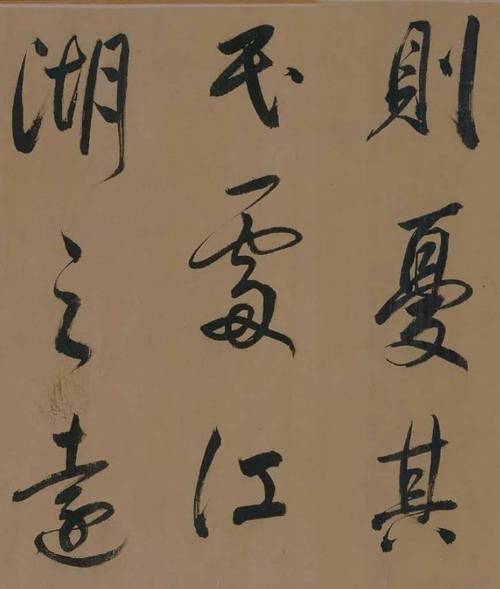 則憂其
民處江
湖之遠